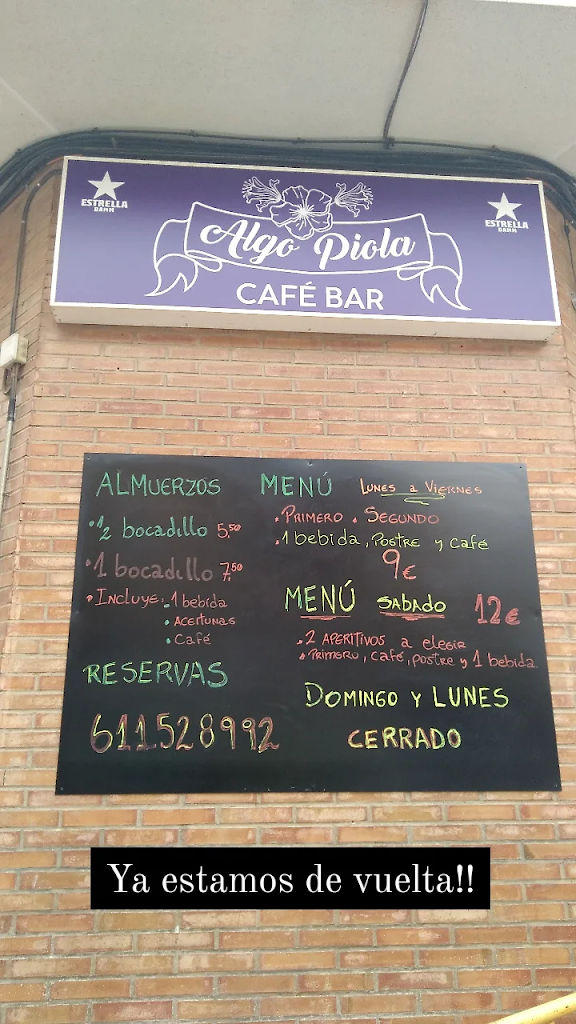 ESTRELLA
DAMM
Algo Piola
CAFÉ BAR
ESTRELLA
DAMM
ALMUERZOS
• 1/2 bocadillo 5,50
• 1 bocadillo 7,50
• INCLUYE: • 1 bebida
• ACEITUNAS
• Café
RESERVAS
611528992
MENÚ LUNES a VIERNES
• PRIMERO • SEGUNDO
• 1 bebida, POSTRE y café
9€
MENÚ SABADO 12€
• 2 APERITIVOS a elegir
• PRIMERO, café, postre y 1 bebida.
DOMINGO Y LUNES
CERRADO
Ya estamos de vuelta!!